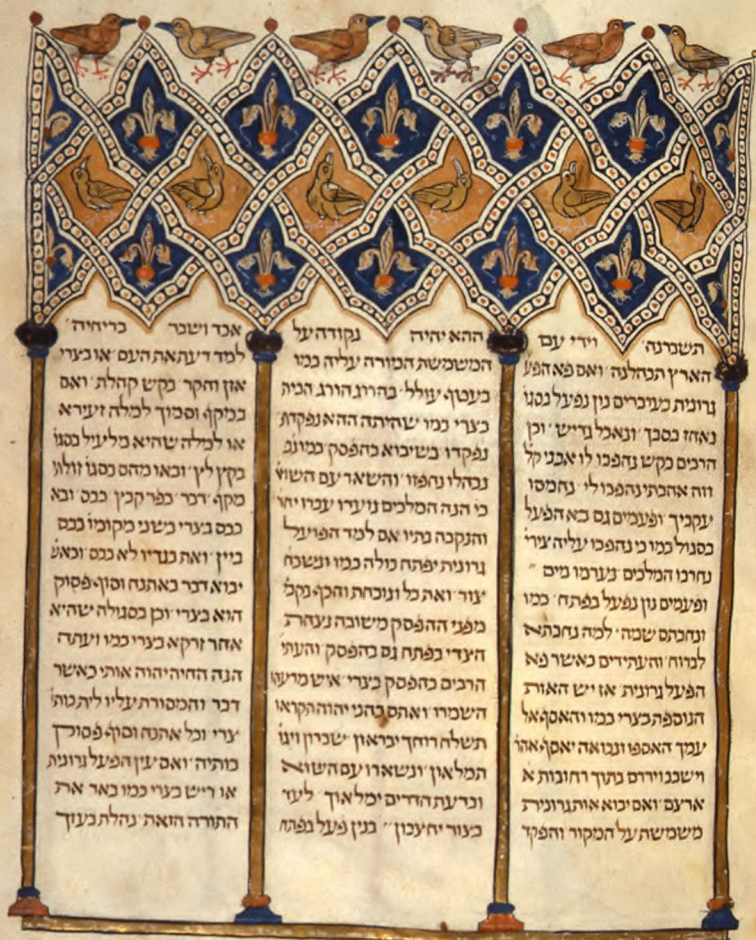 תשברנה וידי עם
הארץ תבהלנה ואם פא הפע
גרונית מעיברים נון נפעל בסגו
נאחז בסבך ונאכל גדיש וכן
הרבים כקש נהפכו לו אבני קל
וזה אהבתי נהפכו לי נחמסו
עקביך ופעמים גם בא הפעל
בסגול כמו כי נהפכו עליה צירי
נחרבו המלכים נערמו מים
ופעמים נון נפעל בפתח כמו
ונחבתם שמה למה נחבתא
לברוח והעתידים כאשר פא
הפעל גרונית אז יש האות
הנוספת בצרי כמו והאסף אל
עמך האספו ונבואה יאסף אהר
בתוך רחובות
ואם יבוא אות גרונית
משמשת על המקור והפקד
ההא יהיה נקודה על
המשמשת המורה עליה כמו
בעטף עולל בהרוג הורג הבית
בצרי כמו שהיתה ההא נפקדת
נפקדו בשיבוא בהפסק כמו
נבהלו נחפזו והשאר עם השוא
כי הנה המלכים נועדו עברו יחד
והנקבה נתיו אם למד הפועל
גרונית יפתח כולה כמו ונשכח
צור ואת כל ונוכחת והכף נקמ
מפני ההפסק משובה נצחת
הצדי בפתח גם בהפסק והעתי
הרבים בהפסק בצרי איש מרעהו
השמרו ואתם כהני יהוה תקראו
תשלח רוחך יבראון שכרון ויגון
תמלאין ונשארו עם השוא
ובדעת חדרים ימלאוך לעד
בצור יחצבון בנין פעל בפתח
אבד ושבר בריחיה
למד דעת את העם או בצרי
אזן וחקר בקש קהלת ואם
במקף וסמוך למלה זעירא
או למלה שהיא מלעיל בסגו
בקץ לץ ובאו מהם בסגו זולת
מקף דבר כפר קבץ כבס ובא
כבס בצרי בשני מקומות כבס
ביין ואת בגדיו לא כבס וכאש
יבוא דבר באתנח וסוף פסוק
הוא בצרי וכן בסגולה שהיא
אחר זרקא בצרי כמו ועתה
הנה החיה יהוה אותי כאשר
דבר והמסורת עליו לית כותי
צרי וכל אתנח וסוף פסוק
כותיה ואם עין הפעל גרונית
או ריש בצרי כמו באר את
התורה הזאת נהלת בעזך